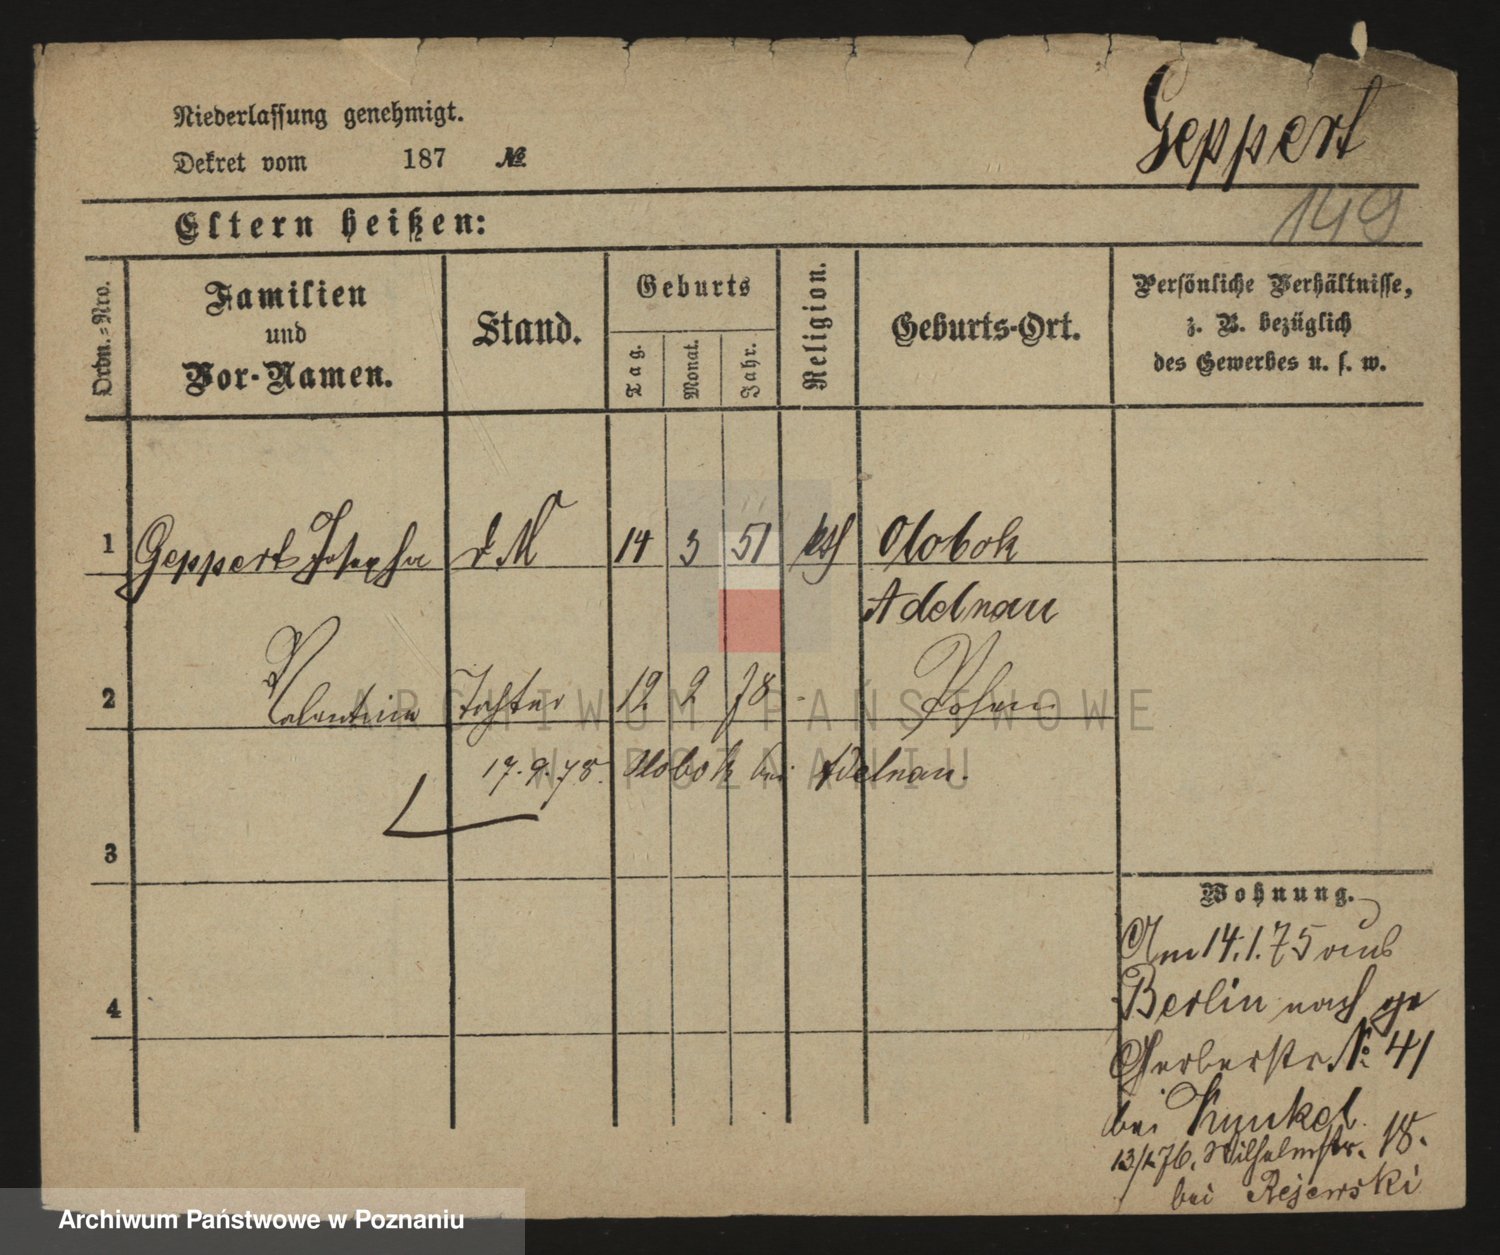 Niederlassung genehmigt.
Dekret vom 187 №
Geppert
149
Eltern heißen:
Ordn.-Nro.
Familien und Vor-Namen.
Stand.
Geburts
Tag.
Monat.
Jahr.
Religion.
Geburts-Ort.
Persönliche Verhältnisse,
z. B. bezüglich
des Gewerbes u. s. w.
1 Geppert Josepha d. M 14 3 51 kth Olobok
Adelnau
2 Valentina Tochter 12. 2 78 - Posen
17.9.78. Olobok bei Adelnau.
3
4
Wohnung.
Am 14.1.75 aus
Berlin nach
Gerberstr. № 41
bei Kunkel
13/1.76. Wilhelmstr. 18.
bei Rejewski
ARCHIWUM PAŃSTWOWE
W POZNANIU
Archiwum Państwowe w Poznaniu